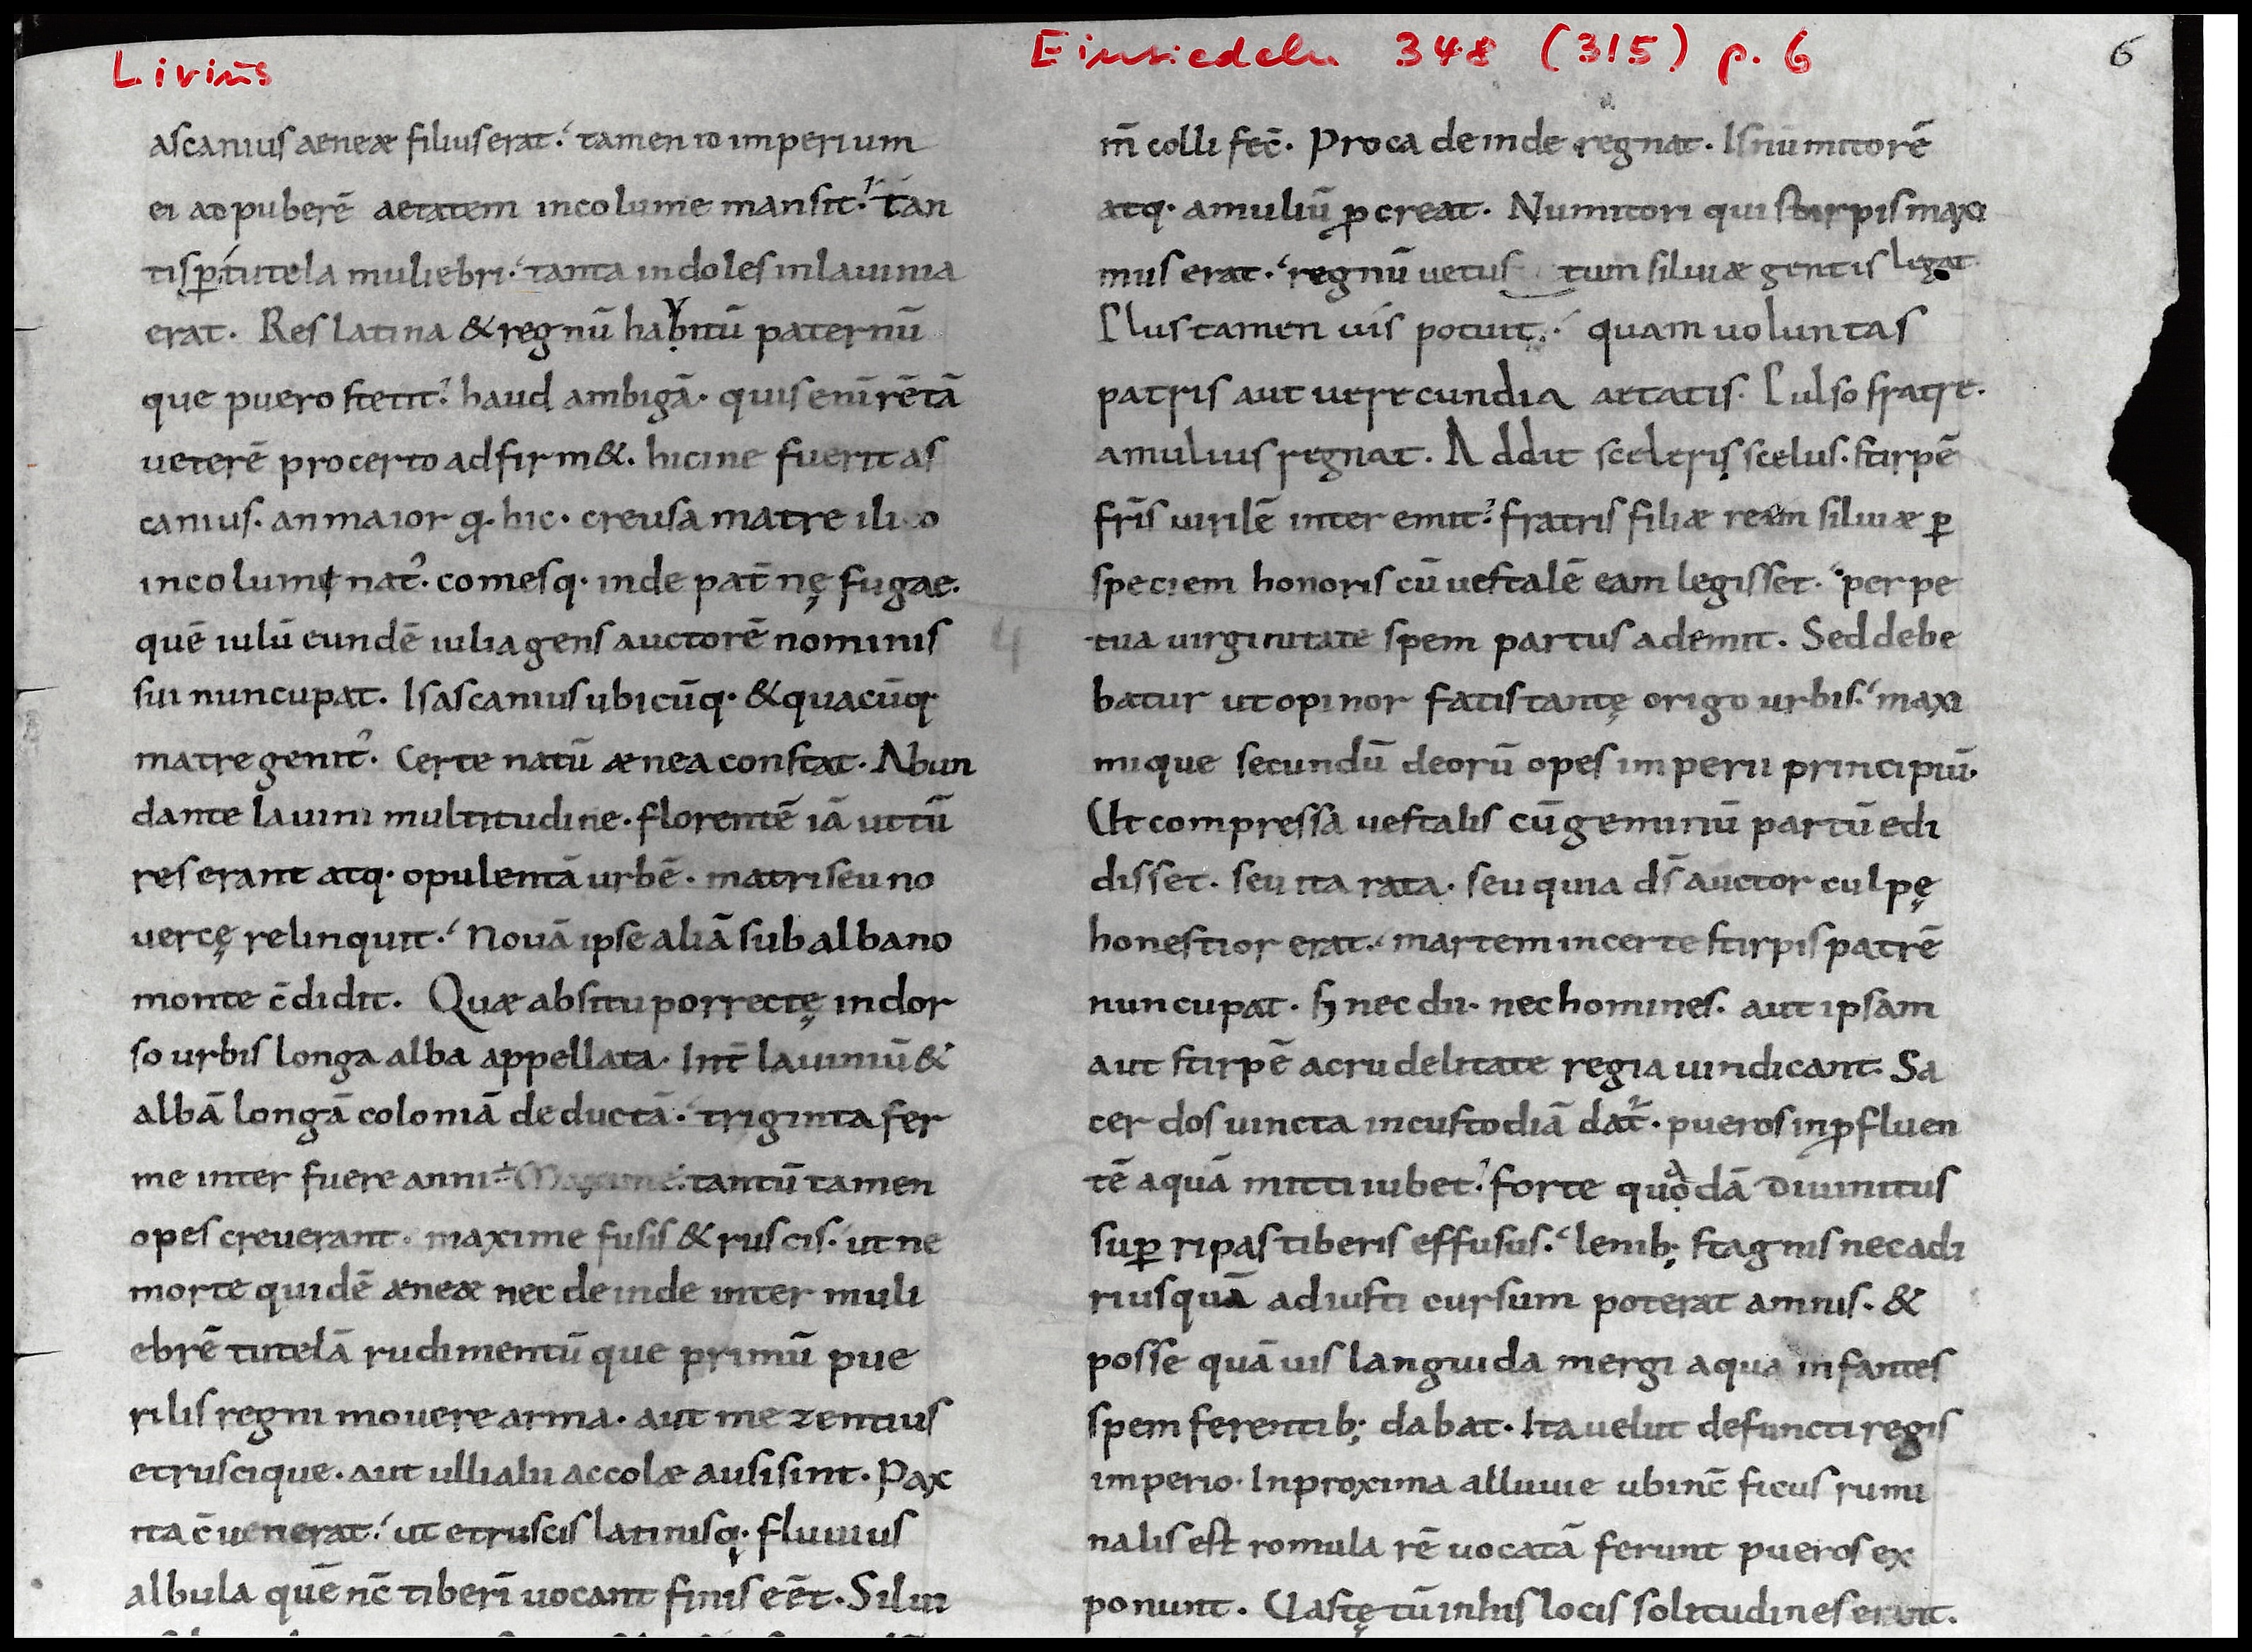 Livius
Einsiedeln 348 (315) p. 6
6
ascanius aeneæ filius erat. tamen id imperium
ei ad puberē aetatem incolume mansit. tan
tisp tutela muliebri. tanta indoles in lauinia
erat. Res latina & regnū habitū paternū
que puero stetit. haud ambigā. quis enī rē tā
ueterē pro certo adfirm&. hicine fuerit as
canius. an maior q̄. hic. creusa matre ilio
incolume nat᾽. comesq. inde pat̄nę fugae.
quē iulū eundē iulia gens auctorē nominis
sui nuncupat. Is ascanius ubicūq. & quacūq
matre genit᾽. Certe natū ænea constat. Abun
dante lauini multitudine. florentē iā ut tū
res erant atq. opulentā urbē. matri seu no
uercę relinquit. Nouā ipse aliā sub albano
monte c̄didit. Quæ ab situ porrectę in dor
so urbis longa alba appellata. Int̄ lauiniū &
albā longā coloniā deductā. triginta fer
me inter fuere anni Maxime tantū tamen
opes creuerant. maxime fusis & ruscis. ut ne
morte quidē æneæ nec deinde inter muli
ebrē tutelā rudimentū que primū pue
rilis regni mouere arma. aut mezentius
etruscique. aut ulli alii accolæ ausi sint. Pax
ita c̄uenerat. ut etruscis latinisq. fluuius
albula quē nc̄ tiberī uocant finis eēt. Silui
m̄ colli fec̄. Proca deinde regnat. Is nūmitorē
atq. amuliū ꝓcreat. Numitori qui stirpis maxi
mus erat. regnū uetustum siluiæ gentis legat
Plus tamen uis potuit. quam uoluntas
patris aut uerecundia aetatis. Pulso fratre.
amulius regnat. Addit sceleris scelus. stirpē
fr̄is uirilē interemit. fratris filiæ ream siluiæ ꝑ
speciem honoris cū uestalē eam legisset. perpe
tua uirginitate spem partus ademit. Sed debe
batur ut opinor fatis tantę origo urbis. maxi
mique secundū deorū opes imperii principiū.
Ut compressa uestalis cū geminū partū edi
disset. seu ita rata. seu quia ds̄ auctor culpę
honestior erat. martem incerte stirpis patrē
nuncupat. s; nec dii. nec homines. aut ipsam
aut stirpē a crudelitate regia uindicant. Sa
cerdos uincta in custodiā dat᾽. pueros in ꝓfluen
tē aquā mitti iubet. forte quadā diuinitus
suꝑ ripas tiberis effusus. lenib; stagnis nec adi
ri usquā ad iusti cursum poterat amnis. &
posse quāuis languida mergi aqua infantes
spem ferentib; dabat. Ita uelut defuncti regis
imperio. In proxima alluuie ubi nc̄ ficus rumi
nalis est romula rē uocatā ferunt pueros ex
ponunt. Uastę tū in his locis solitudines erant.